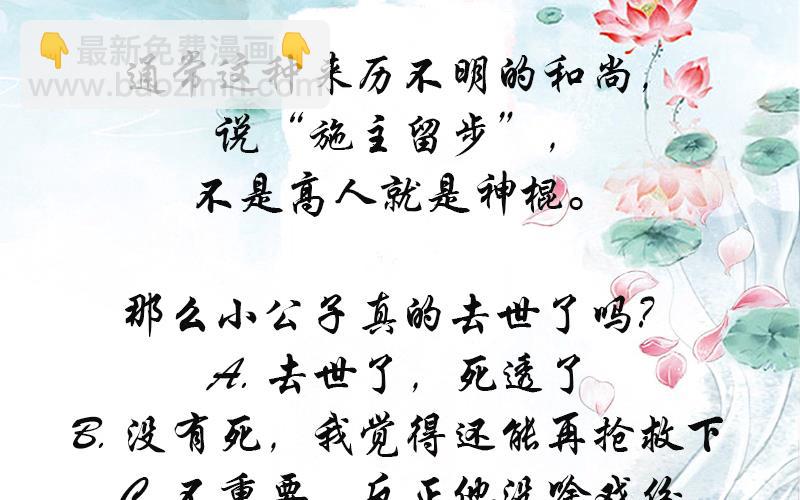 最新免费漫画
通常这种来历不明的和尚，
www.baozimh.com
说“施主留步”，
不是高人就是神棍。
那么小公子真的去世了吗？
A. 去世了，死透了
B. 没有死，我觉得还能再抢救下
C. 不重要，反正他没啥戏份